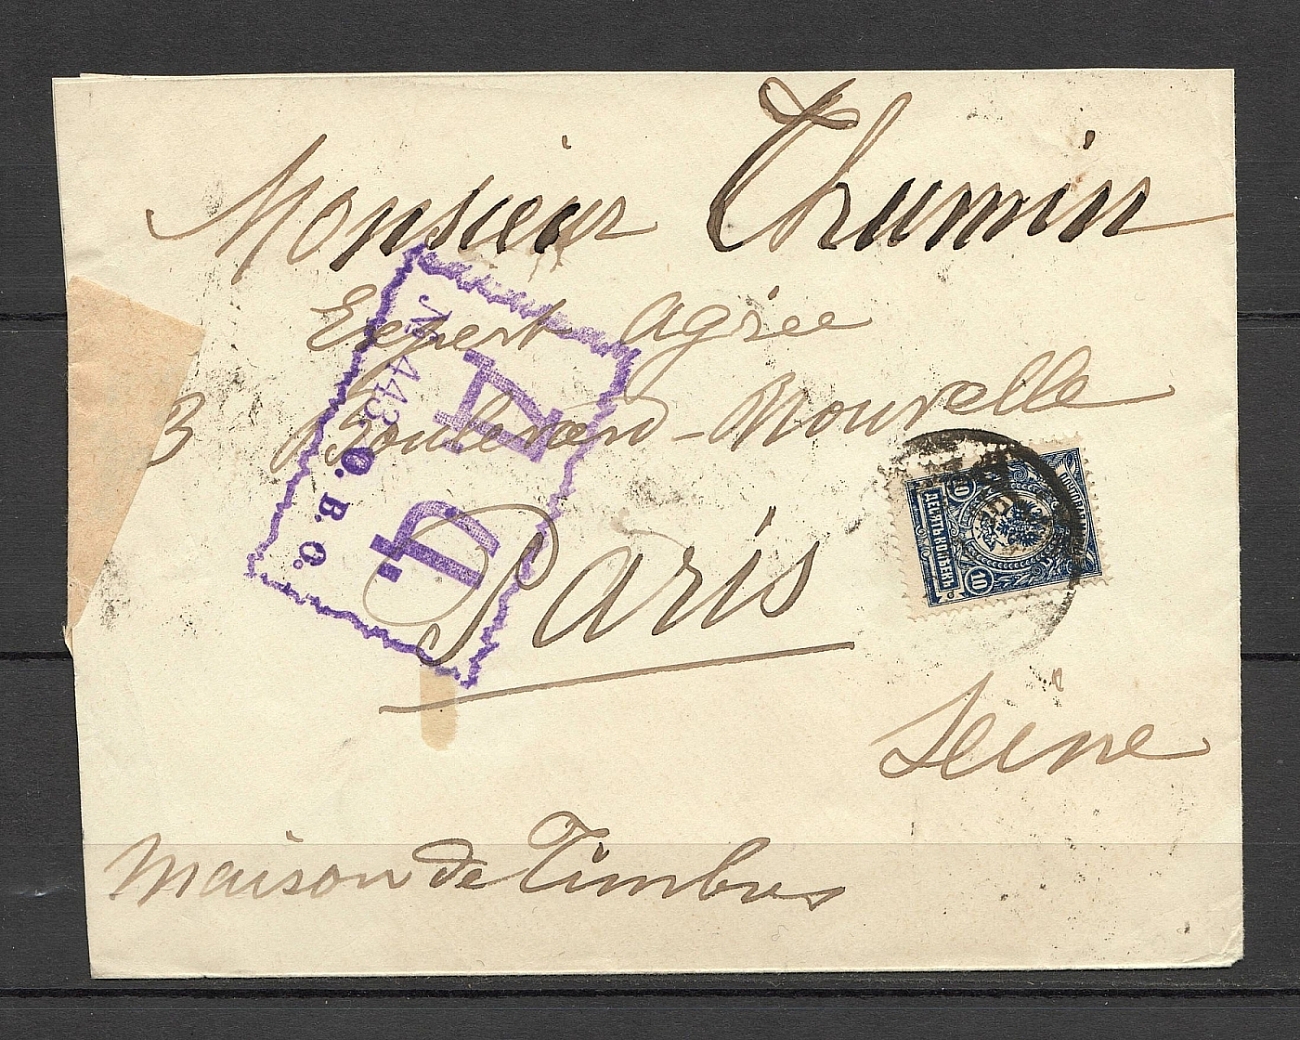 Monsieur Thumin
Expert agrée
3 Boulevard - Nouvelle
Paris
Seine
Maison de Timbres
№ 443
Д. Ц.
О. В. О.
10 10
ДЕСЯТЬ КОПѢЕКЪ